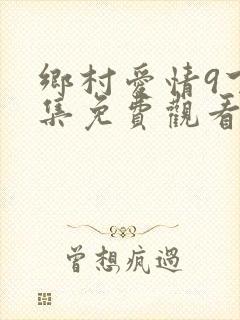 鄉村愛情9
集免費觀看
曾想疯過